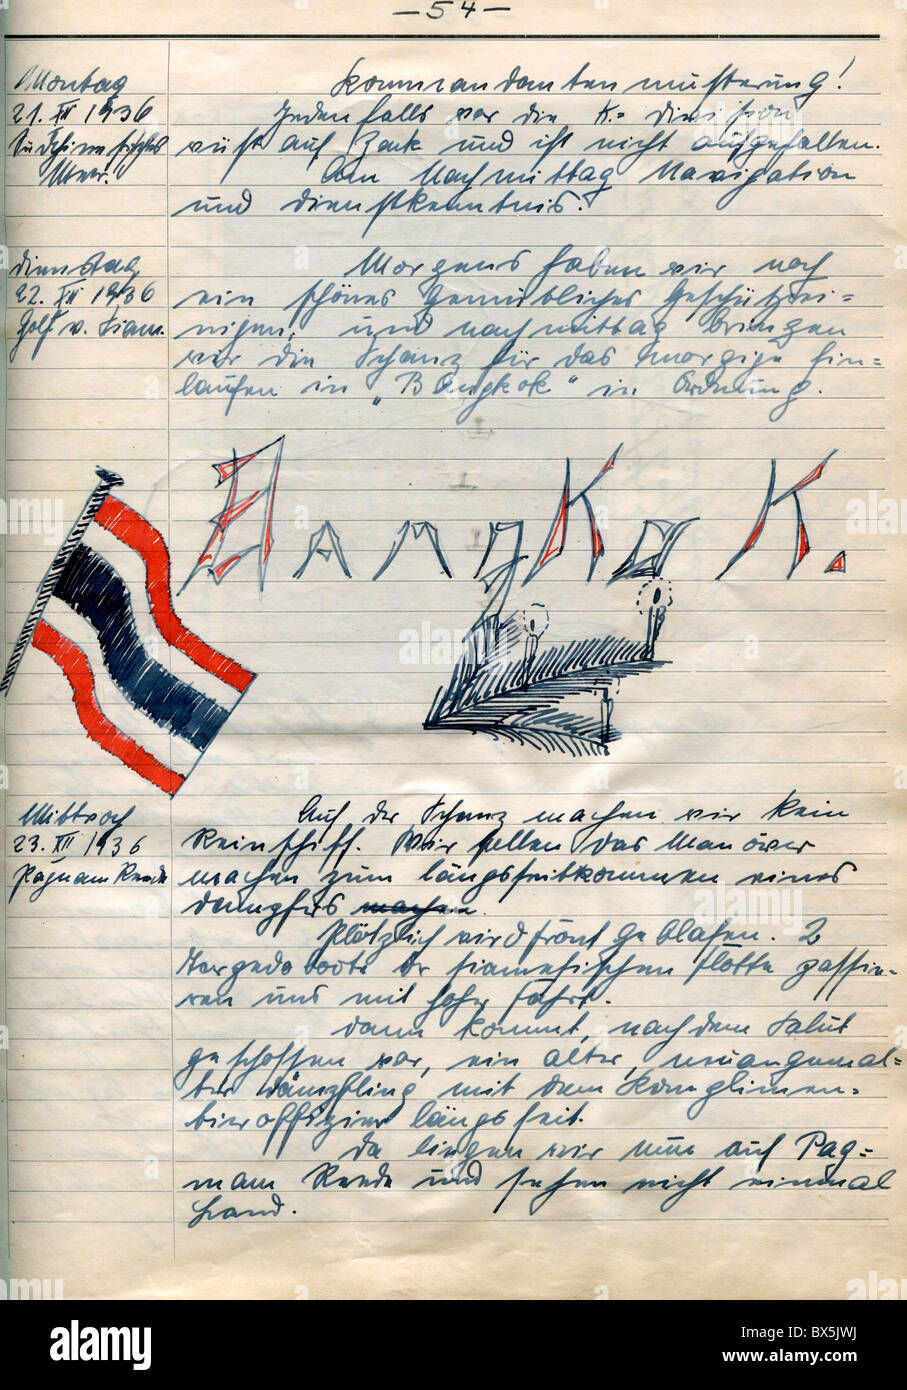 — 54 —
Montag
21. XII 1936
Südchinesisches
Meer.
Kommandantenmusterung!
Jedenfalls war die K.= Division
auf Zack und ist nicht aufgefallen.
Am Nachmittag Navigation
und Dienstkenntnis.
Dienstag
22. XII 1936
Golf v. Siam.
Morgens haben wir noch
ein schönes gemütliches Geschützrei=
nigen, und nachmittag bringen
wir die Schanz für das morgige Ein=
laufen in „Bangkok" in Ordnung.
BangKoK.
Mittwoch
23. XII 1936
Pagnam Reede
Auf der Schanz machen wir kein
Reinschiff. Wir sollen das Manöver
machen zum längsseitkommen eines
Dampfers machen.
Plötzlich wird Front geblasen. 2
Torpedoboote der siamesischen Flotte passie=
ren uns mit hoher Fahrt.
Dann kommt, nachdem Salut
geschossen war, ein alter, neuangemal=
ter Dämpfling mit dem Komplimen=
tieroffizier längsseit.
Da liegen wir nun auf Pag=
nam Reede und sehen nicht einmal
Land.
alamy
Image ID: BX5JWJ
www.alamy.com